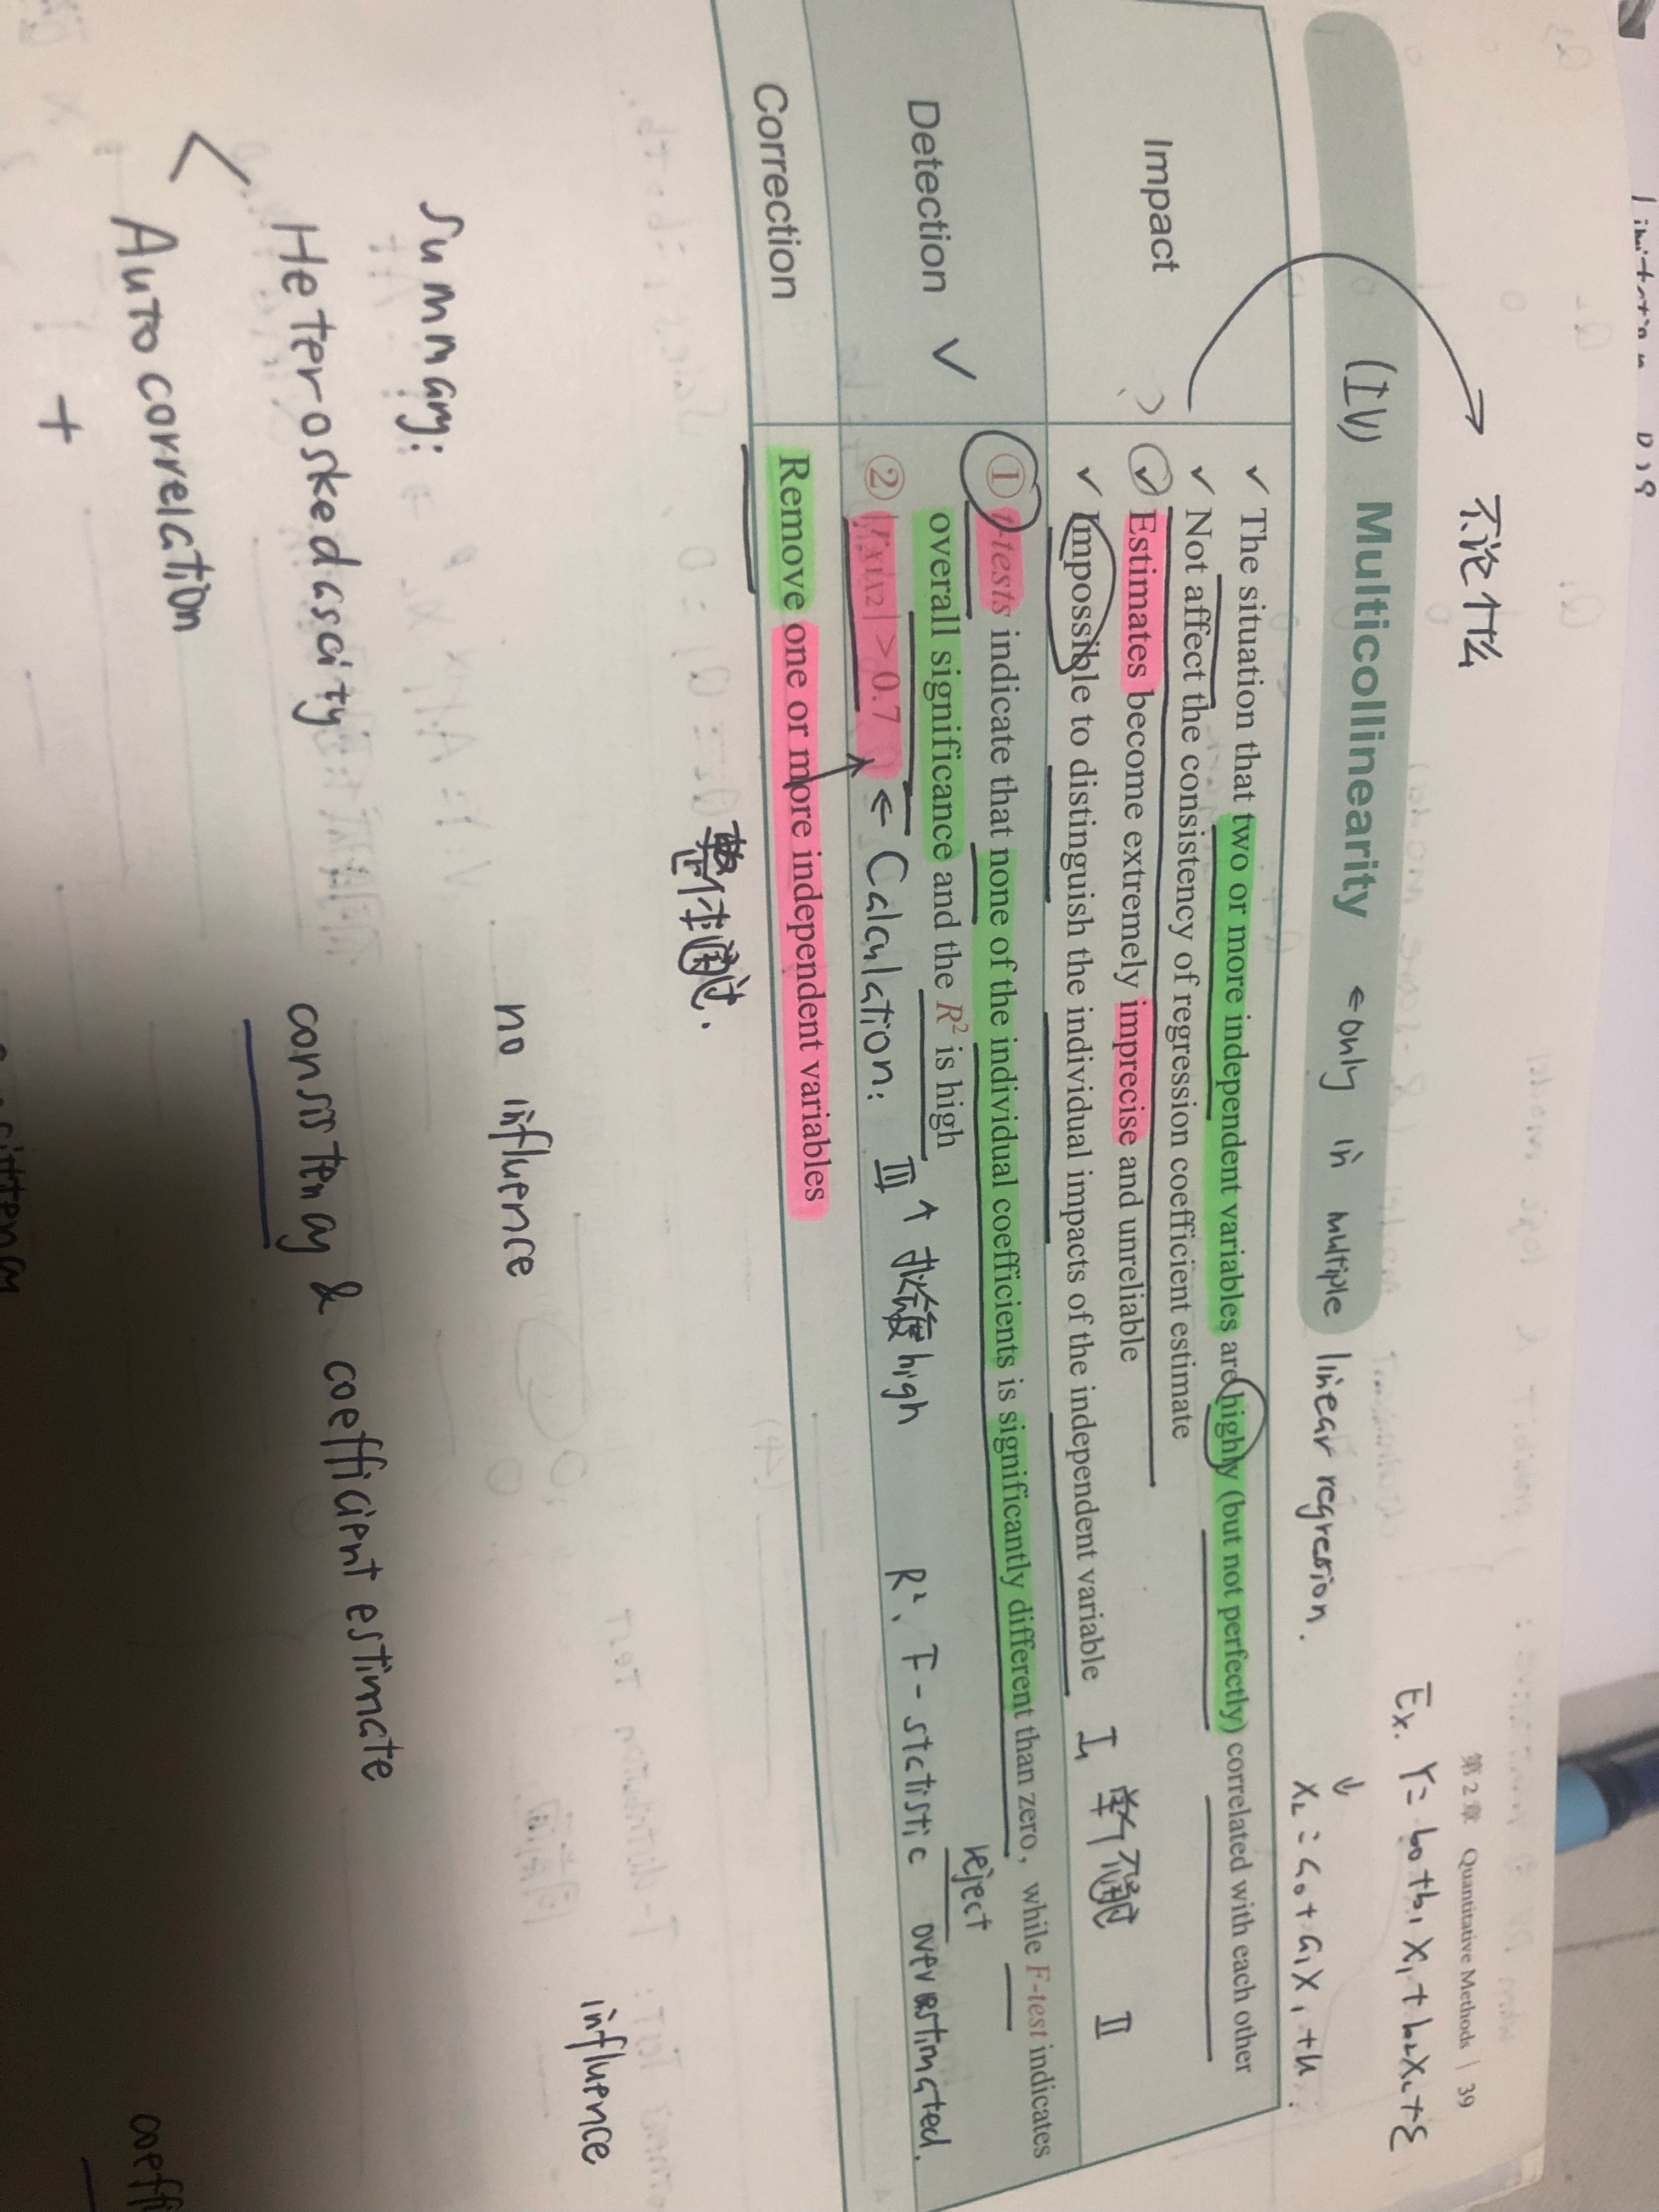 第 2 章 Quantitative Methods | 39
不论什么
Ex. Y = b0 + b1 X1 + b2 X2 + ε
↓
X2 = a0 + a1 X1 + u
(IV) Multicollinearity ← only in multiple linear regression.
Impact
✓ The situation that two or more independent variables are highly (but not perfectly) correlated with each other
✓ Not affect the consistency of regression coefficient estimate
✓ Estimates become extremely imprecise and unreliable
✓ Impossible to distinguish the individual impacts of the independent variable
II
Detection ✓
① t-tests indicate that none of the individual coefficients is significantly different than zero, while F-test indicates
overall significance and the R² is high
reject
② |rx1x2| > 0.7 ← Calculation: III ↑ high R², F-statistic overestimated.
Correction
Remove one or more independent variables
Summary:
no influence
influence
Heteroskedascity
consistency & coefficient estimate
< Autocorrelation
+